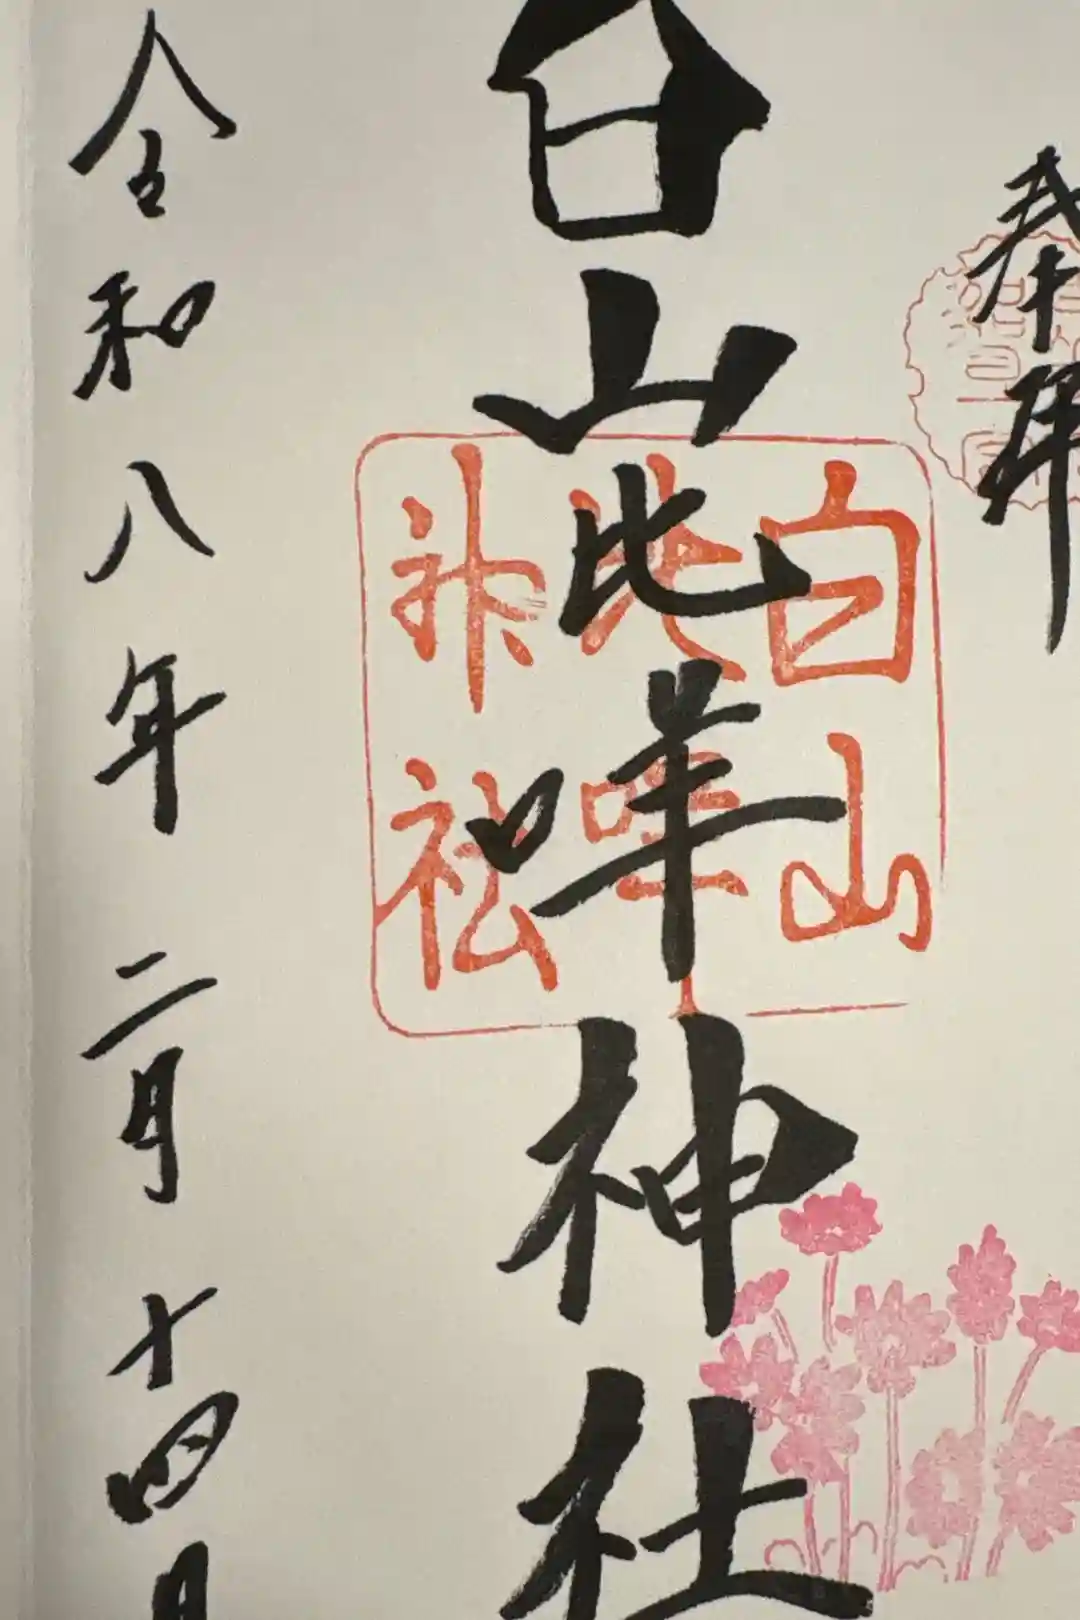 奉拝
白山比咩神社
白山
比咩
神社
令和八年二月十四日